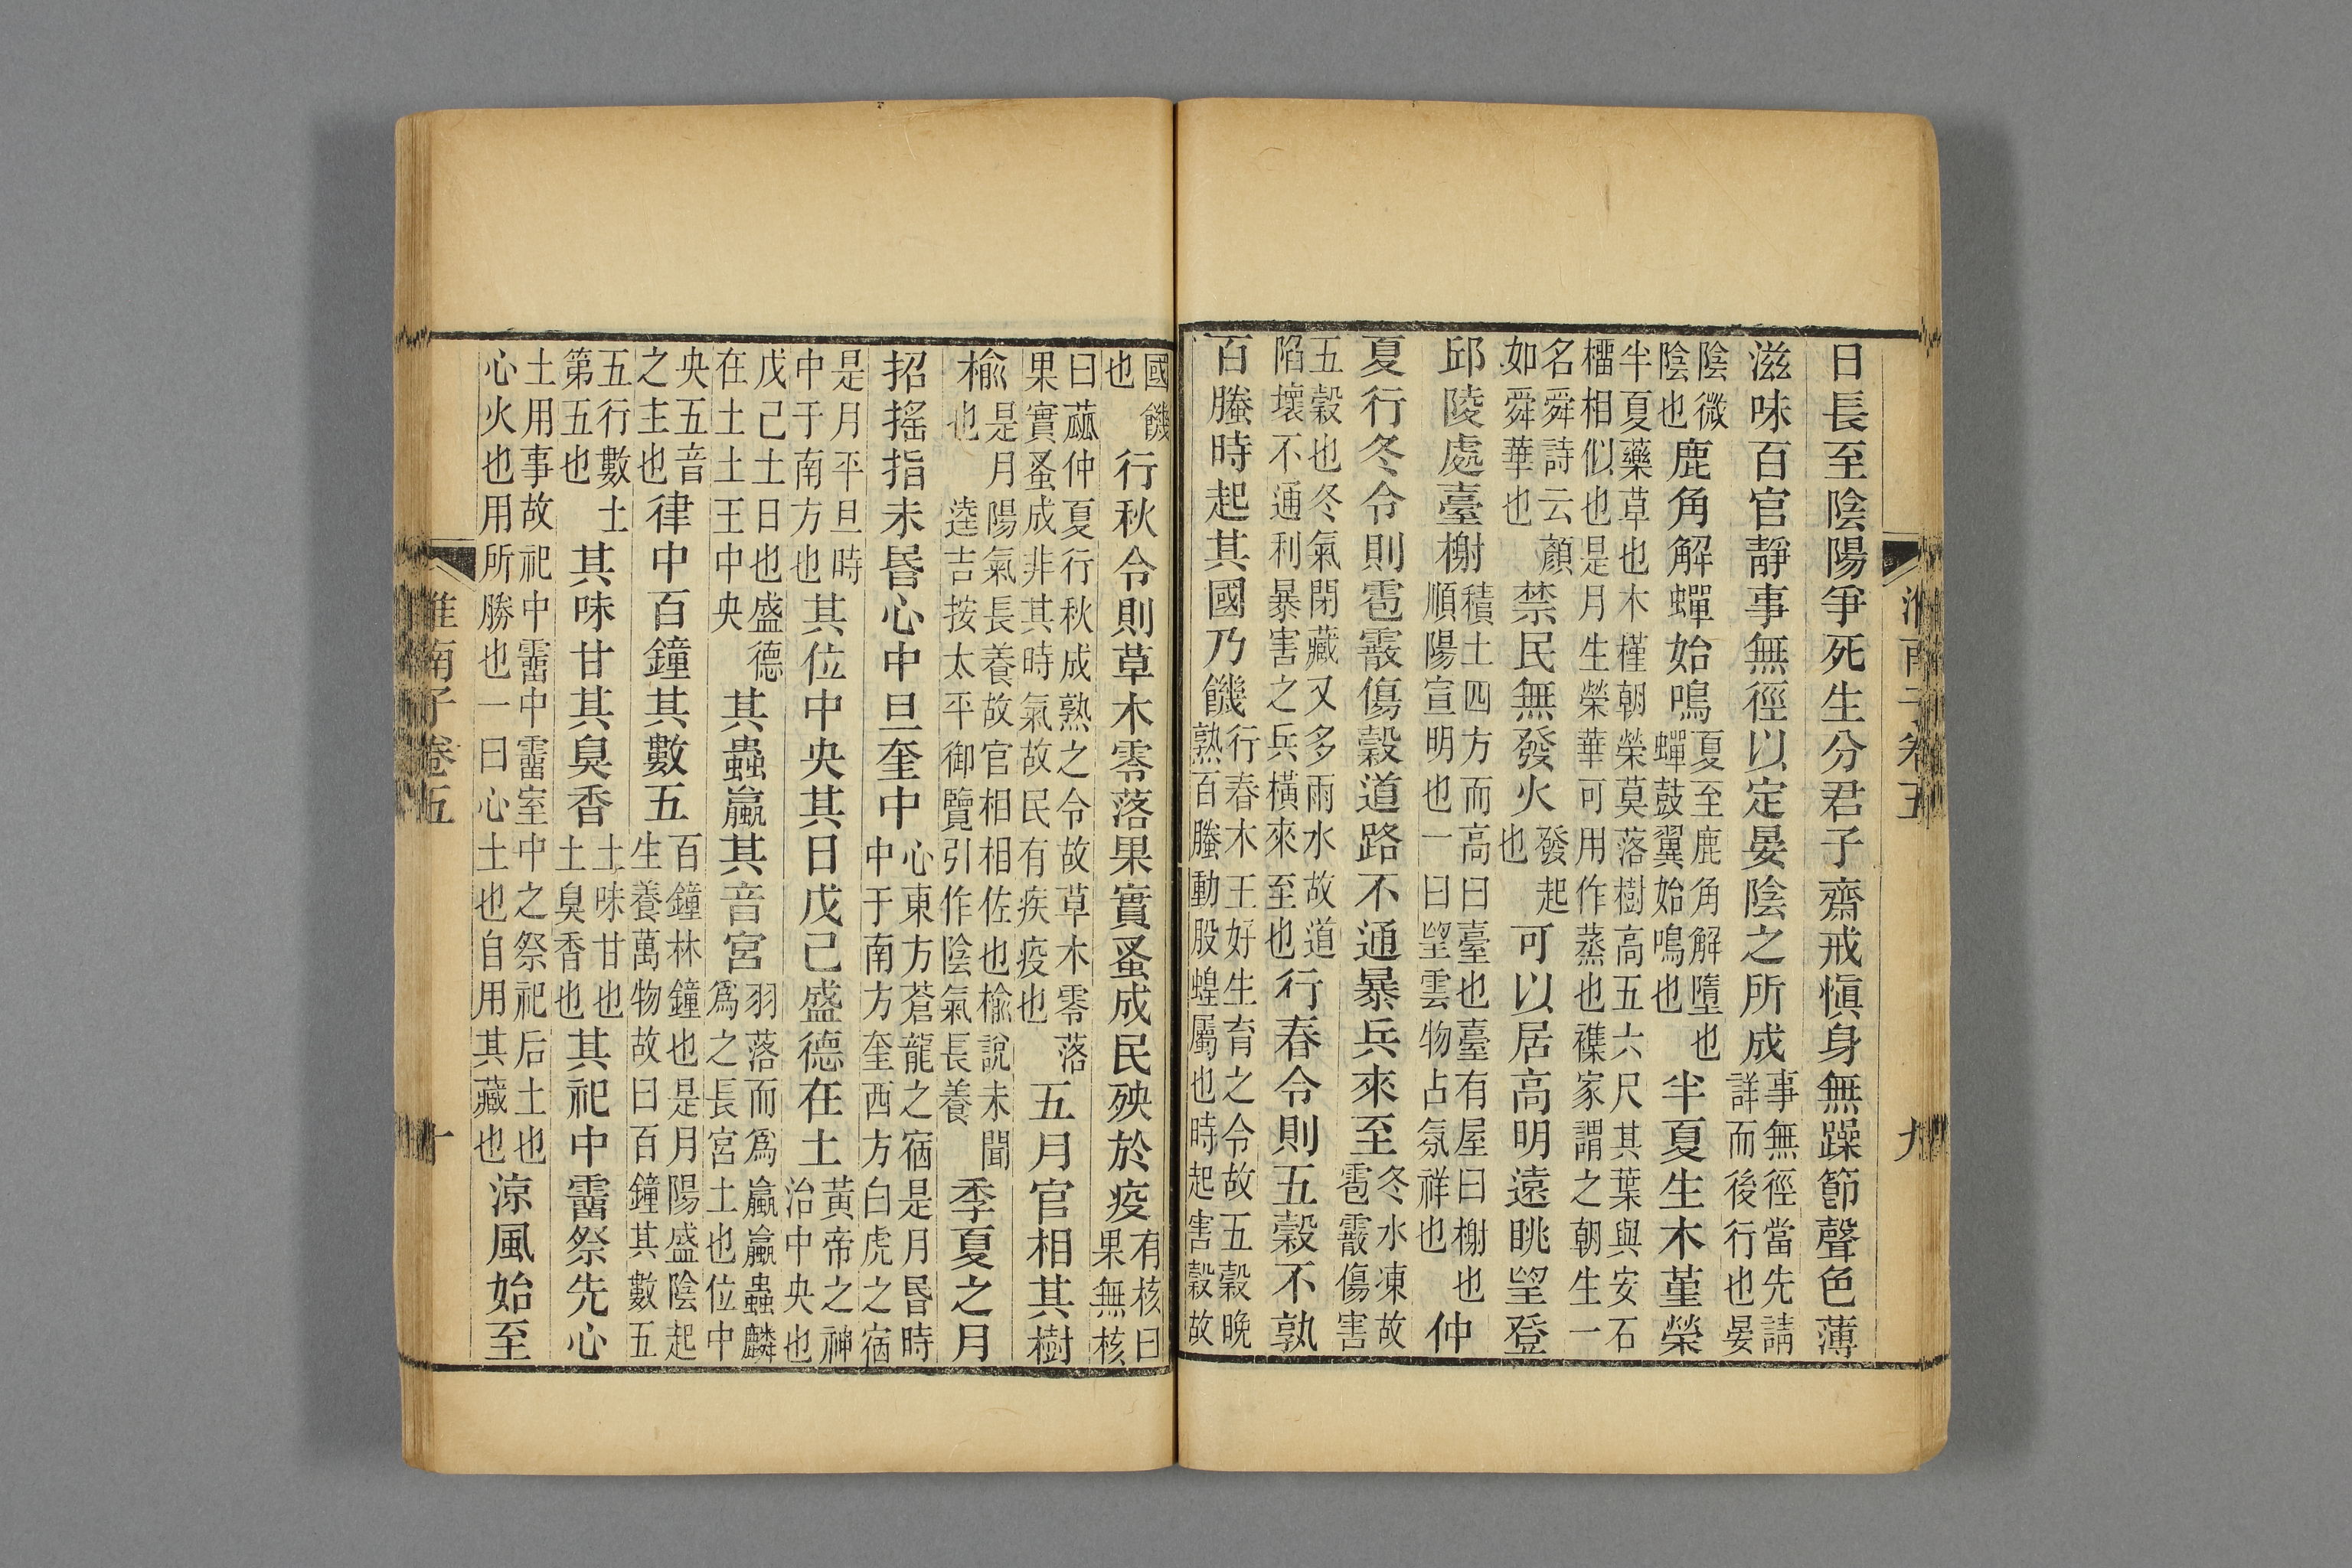 淮南子卷五 九
日長至陰陽爭死生分君子齋戒愼身無躁節聲色薄
滋味百官靜事無徑以定晏陰之所成事無徑當先請詳而後行也晏
陰微陰也鹿角解蟬始鳴夏至鹿角解墮也蟬鼓翼始鳴也半夏生木堇榮
半夏藥草也木槿朝榮莫落樹高五六尺其葉與安石橊相似也是月生榮華可用作蒸也襍家謂之朝生一
名舜詩云顏如舜華也禁民無發火發起也可以居高明遠眺望登
邱陵處臺榭積土四方而高曰臺也臺有屋曰榭也順陽宣明也一曰望雲物占氛祥也仲
夏行冬令則雹霰傷穀道路不通暴兵來至冬水凍故雹霰傷害
五穀也冬氣閉藏又多雨水故道陷壞不通利暴害之兵橫來至也行春令則五穀不孰
百螣時起其國乃饑行春木王好生育之令故五穀晚熟百螣動股蝗屬也時起害穀故
國饑也行秋令則草木零落果實蚤成民殃於疫有核曰果無核
曰蓏仲夏行秋成熟之令故草木零落果實蚤成非其時氣故民有疾疫也五月官相其樹
楡是月陽氣長養故官相相佐也楡說未聞也 逵吉按太平御覽引作陰氣長養季夏之月
招搖指未昬心中旦奎中心東方蒼龍之宿是月昬時中于南方奎西方白虎之宿
是月平旦時中于南方也其位中央其日戊己盛德在土黃帝之神治中央也
戊己土日也盛德在土土王中央其蟲蠃其音宮羽落而爲蠃蠃蟲麟爲之長宮土也位中
央五音之主也律中百鐘其數五百鐘林鐘也是月陽盛陰起生養萬物故曰百鐘其數五
五行數土第五也其味甘其臭香土味甘也土臭香也其祀中霤祭先心
土用事故祀中霤中霤室中之祭祀后土也心火也用所勝也一曰心土也自用其藏也涼風始至
淮南子卷五 十